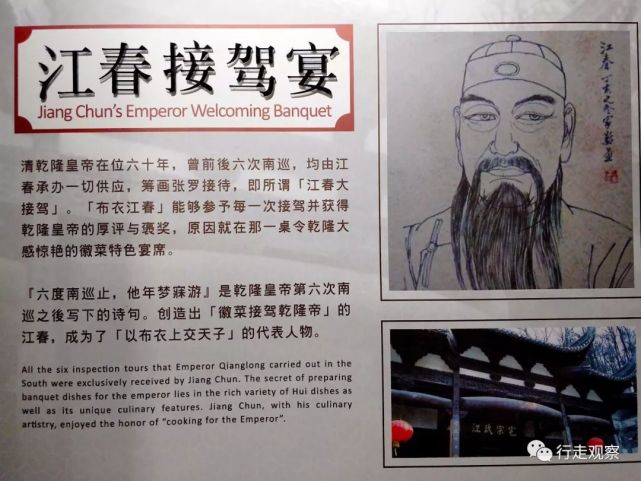 江春接驾宴
Jiang Chun's Emperor Welcoming Banquet
清乾隆皇帝在位六十年，曾前後六次南巡，均由江
春承办一切供应，筹画张罗接待，即所谓「江春大
接驾」。「布衣江春」能够参予每一次接驾并获得
乾隆皇帝的厚评与褒奖，原因就在那一桌令乾隆大
感惊艳的徽菜特色宴席。
『六度南巡止，他年梦寐游』是乾隆皇帝第六次南
巡之後写下的诗句。创造出「徽菜接驾乾隆帝」的
江春，成为了「以布衣上交天子」的代表人物。
All the six inspection tours that Emperor Qianglong carried out in the
South were exclusively received by Jiang Chun. The secret of preparing
banquet dishes for the emperor lies in the rich variety of Hui dishes as
well as its unique culinary features. Jiang Chun, with his culinary
artistry, enjoyed the honor of "cooking for the Emperor".
江春
江氏宗宅
行走观察